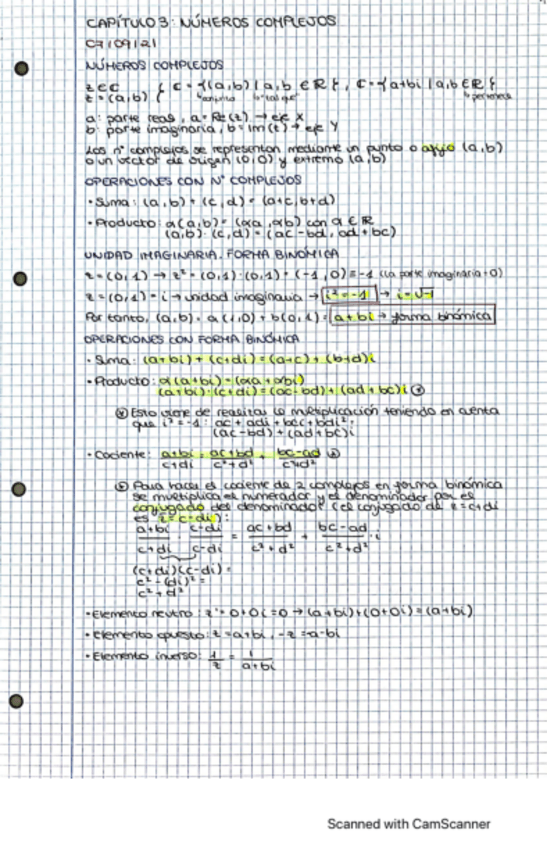 CAPÍTULO 3: NÚMEROS COMPLEJOS
07/09/21
NÚMEROS COMPLEJOS
z ∈ C
z = (a,b) { C = {(a,b) | a,b ∈ R}, C = {a+bi | a,b ∈ R}
conjunto tal que pertenece
a: parte real, a = Re(z) → eje X
b: parte imaginaria, b = Im(z) → eje Y
Los nº complejos se representan mediante un punto o afijo (a,b)
o un vector de origen (0,0) y extremo (a,b)
OPERACIONES CON Nº COMPLEJOS
· Suma: (a,b) + (c,d) = (a+c, b+d)
· Producto: α(a,b) = (αa, αb) con α ∈ R
(a,b)·(c,d) = (ac-bd, ad+bc)
UNIDAD IMAGINARIA. FORMA BINÓMICA
z = (0,1) → z² = (0,1)·(0,1) = (-1,0) = -1 (la parte imaginaria = 0)
z = (0,1) = i → unidad imaginaria → i² = -1 → i = √-1
Por tanto, (a,b) = a(1,0) + b(0,1) = a+bi → forma binómica
OPERACIONES CON FORMA BINÓMICA
· Suma: (a+bi) + (c+di) = (a+c) + (b+d)i
· Producto: α(a+bi) = (αa + αbi)
(a+bi)·(c+di) = (ac-bd) + (ad+bc)i
Esto viene de realizar la multiplicación teniendo en cuenta
que i² = -1: ac + adi + bci + bdi² =
(ac-bd) + (ad+bc)i
· Cociente: a+bi / c+di = ac+bd / c²+d² + bc-ad / c²+d²
Para hacer el cociente de 2 complejos en forma binómica
se multiplica el numerador y el denominador por el
conjugado del denominador (el conjugado de z = c+di
es z̄ = c-di):
a+bi / c+di · c-di / c-di = ac+bd / c²+d² + bc-ad / c²+d² · i
(c+di)(c-di) =
c² - (di)² =
c² + d²
· Elemento neutro: z = 0+0i = 0 → (a+bi)+(0+0i) = (a+bi)
· Elemento opuesto: z = a+bi, -z = -a-bi
· Elemento inverso: 1/z = 1 / a+bi
Scanned with CamScanner